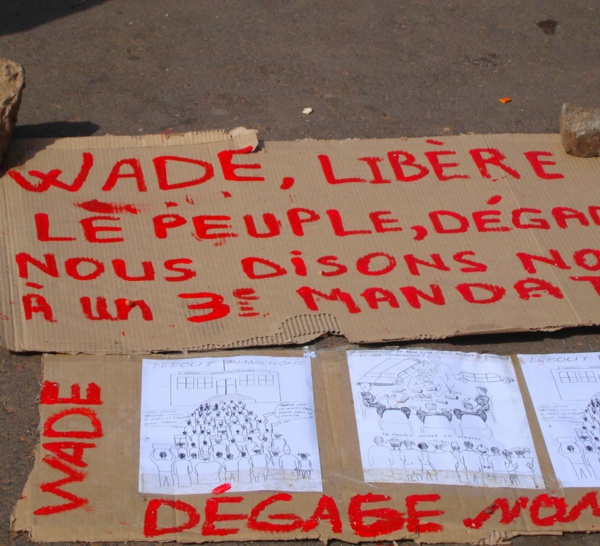 WADE, LIBÈRE
LE PEUPLE, DÉGA
NOUS DISONS NO
À UN 3E MANDAT
WADE
DEBOUT
DÉGAGE NON